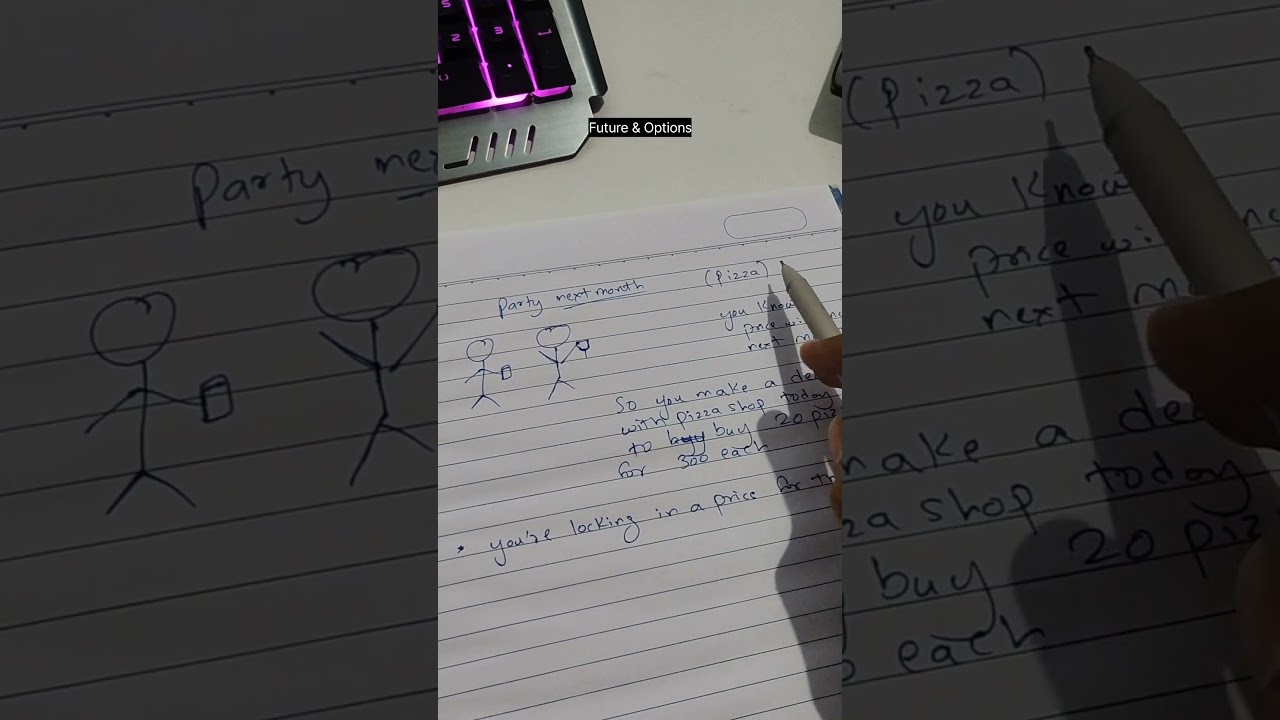 Future & Options
Party next month
(Pizza)
you know
price wi
next m
So you make a de
with pizza shop today
to buy buy 20 piz
for 300 each
• you're locking in a price for th